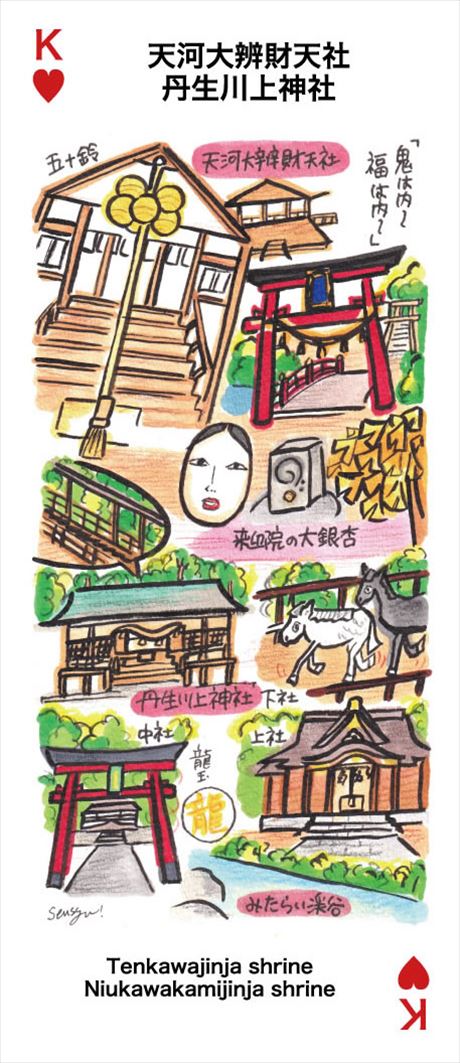 K
天河大辨財天社
丹生川上神社
五十鈴
天河大辨財天社
「鬼は内〜
福は内〜」
来迎院の大銀杏
丹生川上神社 下社
中社
龍玉
龍
上社
みたらい渓谷
Sensyu!
Tenkawajinja shrine
Niukawakamijinja shrine
K